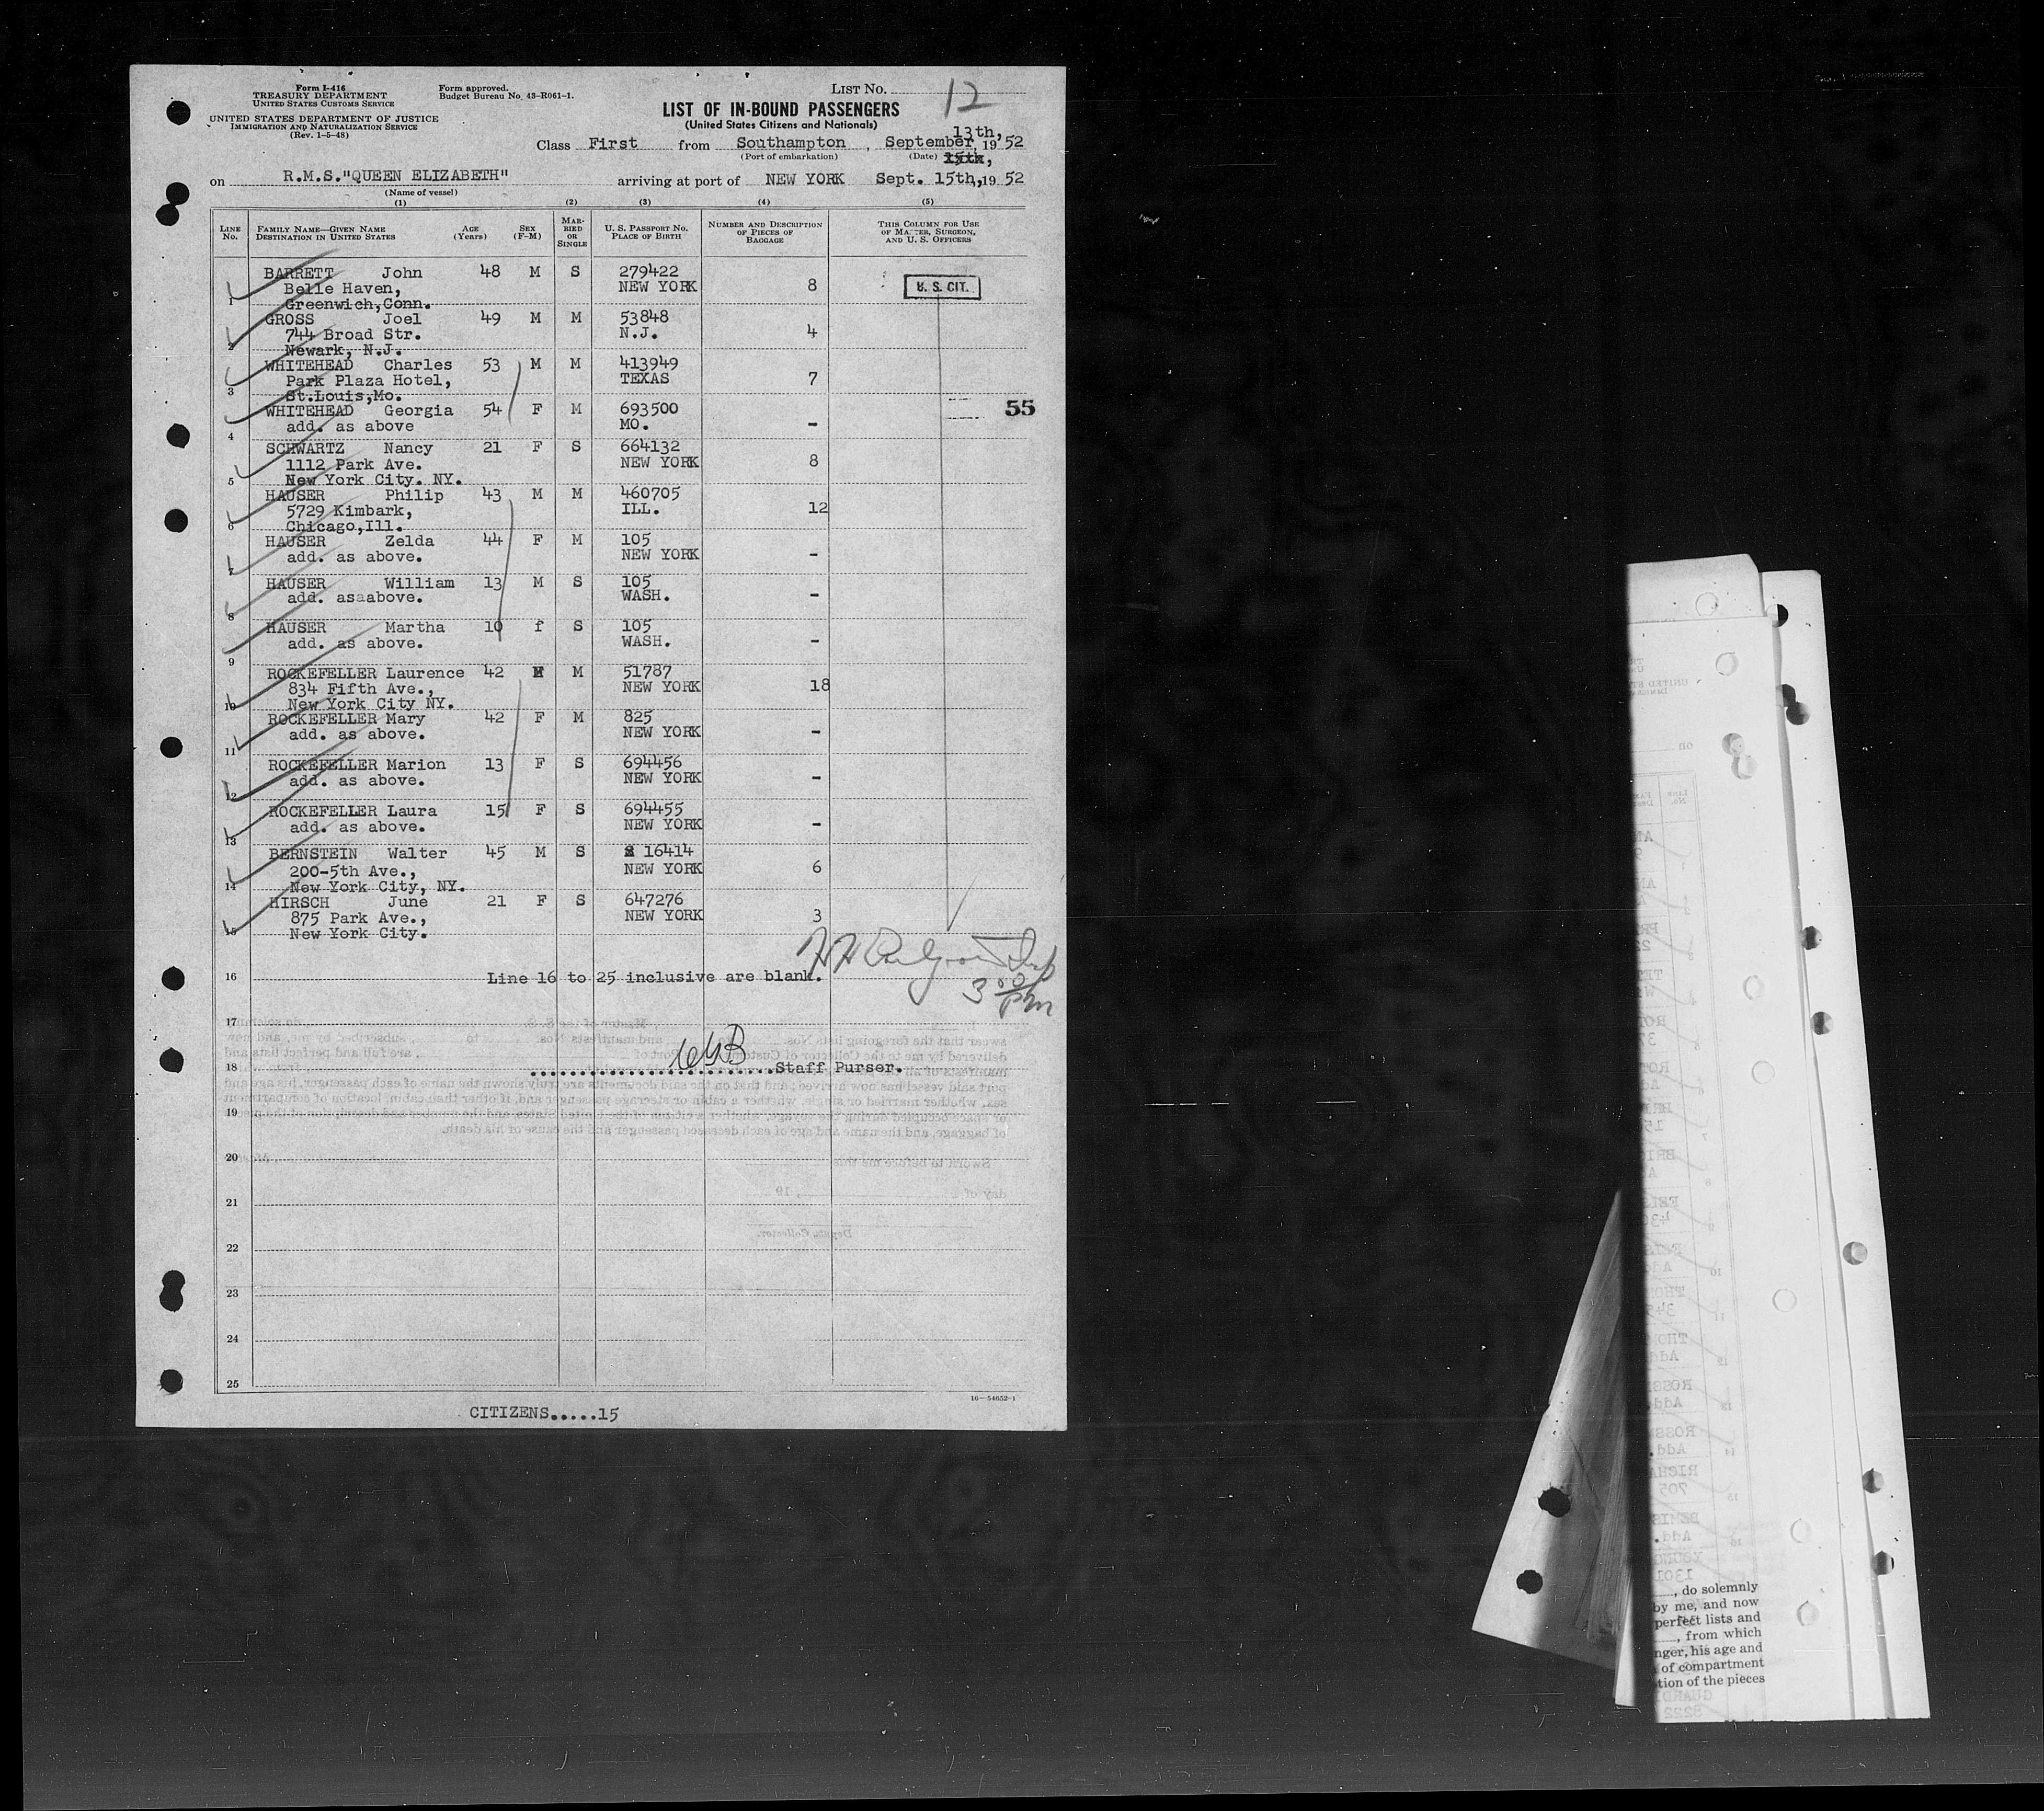 Form I-416
TREASURY DEPARTMENT
UNITED STATES CUSTOMS SERVICE
UNITED STATES DEPARTMENT OF JUSTICE
IMMIGRATION AND NATURALIZATION SERVICE
(Rev. 1-5-48)
Form approved.
Budget Bureau No. 43-R061-1.
LIST NO. 12
LIST OF IN-BOUND PASSENGERS
(United States Citizens and Nationals)
13th,
Class First from Southampton, September, 1952
(Port of embarkation) (Date) 15th,
on R.M.S."QUEEN ELIZABETH" arriving at port of NEW YORK Sept. 15th, 1952
(Name of vessel)
(1) (2) (3) (4) (5)
LINE NO. FAMILY NAME—GIVEN NAME DESTINATION IN UNITED STATES AGE (Years) SEX (F-M) MARRIED OR SINGLE U. S. PASSPORT NO. PLACE OF BIRTH NUMBER AND DESCRIPTION OF PIECES OF BAGGAGE THIS COLUMN FOR USE OF MASTER, SURGEON, AND U. S. OFFICERS
BARRETT John 48 M S 279422
Belle Haven, NEW YORK 8 U. S. CIT.
1 Greenwich,Conn.
GROSS Joel 49 M M 53848
744 Broad Str. N.J. 4
2 Newark, N.J.
WHITEHEAD Charles 53 M M 413949
Park Plaza Hotel, TEXAS 7
3 St.Louis,Mo.
WHITEHEAD Georgia 54 F M 693500 55
add. as above MO. -
4
SCHWARTZ Nancy 21 F S 664132
1112 Park Ave. NEW YORK 8
5 New York City. NY.
HAUSER Philip 43 M M 460705
5729 Kimbark, ILL. 12
6 Chicago,Ill.
HAUSER Zelda 44 F M 105
add. as above. NEW YORK -
7
HAUSER William 13 M S 105
add. asaabove. WASH. -
8
HAUSER Martha 10 f S 105
add. as above. WASH. -
9
ROCKEFELLER Laurence 42 M M 51787
834 Fifth Ave., NEW YORK 18
10 New York City NY.
ROCKEFELLER Mary 42 F M 825
add. as above. NEW YORK -
11
ROCKEFELLER Marion 13 F S 694456
add. as above. NEW YORK -
12
ROCKEFELLER Laura 15 F S 694455
add. as above. NEW YORK -
13
BERNSTEIN Walter 45 M S 16414
200-5th Ave., NEW YORK 6
14 New York City, NY.
HIRSCH June 21 F S 647276
875 Park Ave., NEW YORK 3
15 New York City.
16 Line 16 to 25 inclusive are blank.
3 00 pm
17
18 Staff Purser.
19
20
21
22
23
24
25
16-54652-1
CITIZENS.....15
, do solemnly
by me, and now
perfect lists and
, from which
nger, his age and
of compartment
tion of the pieces